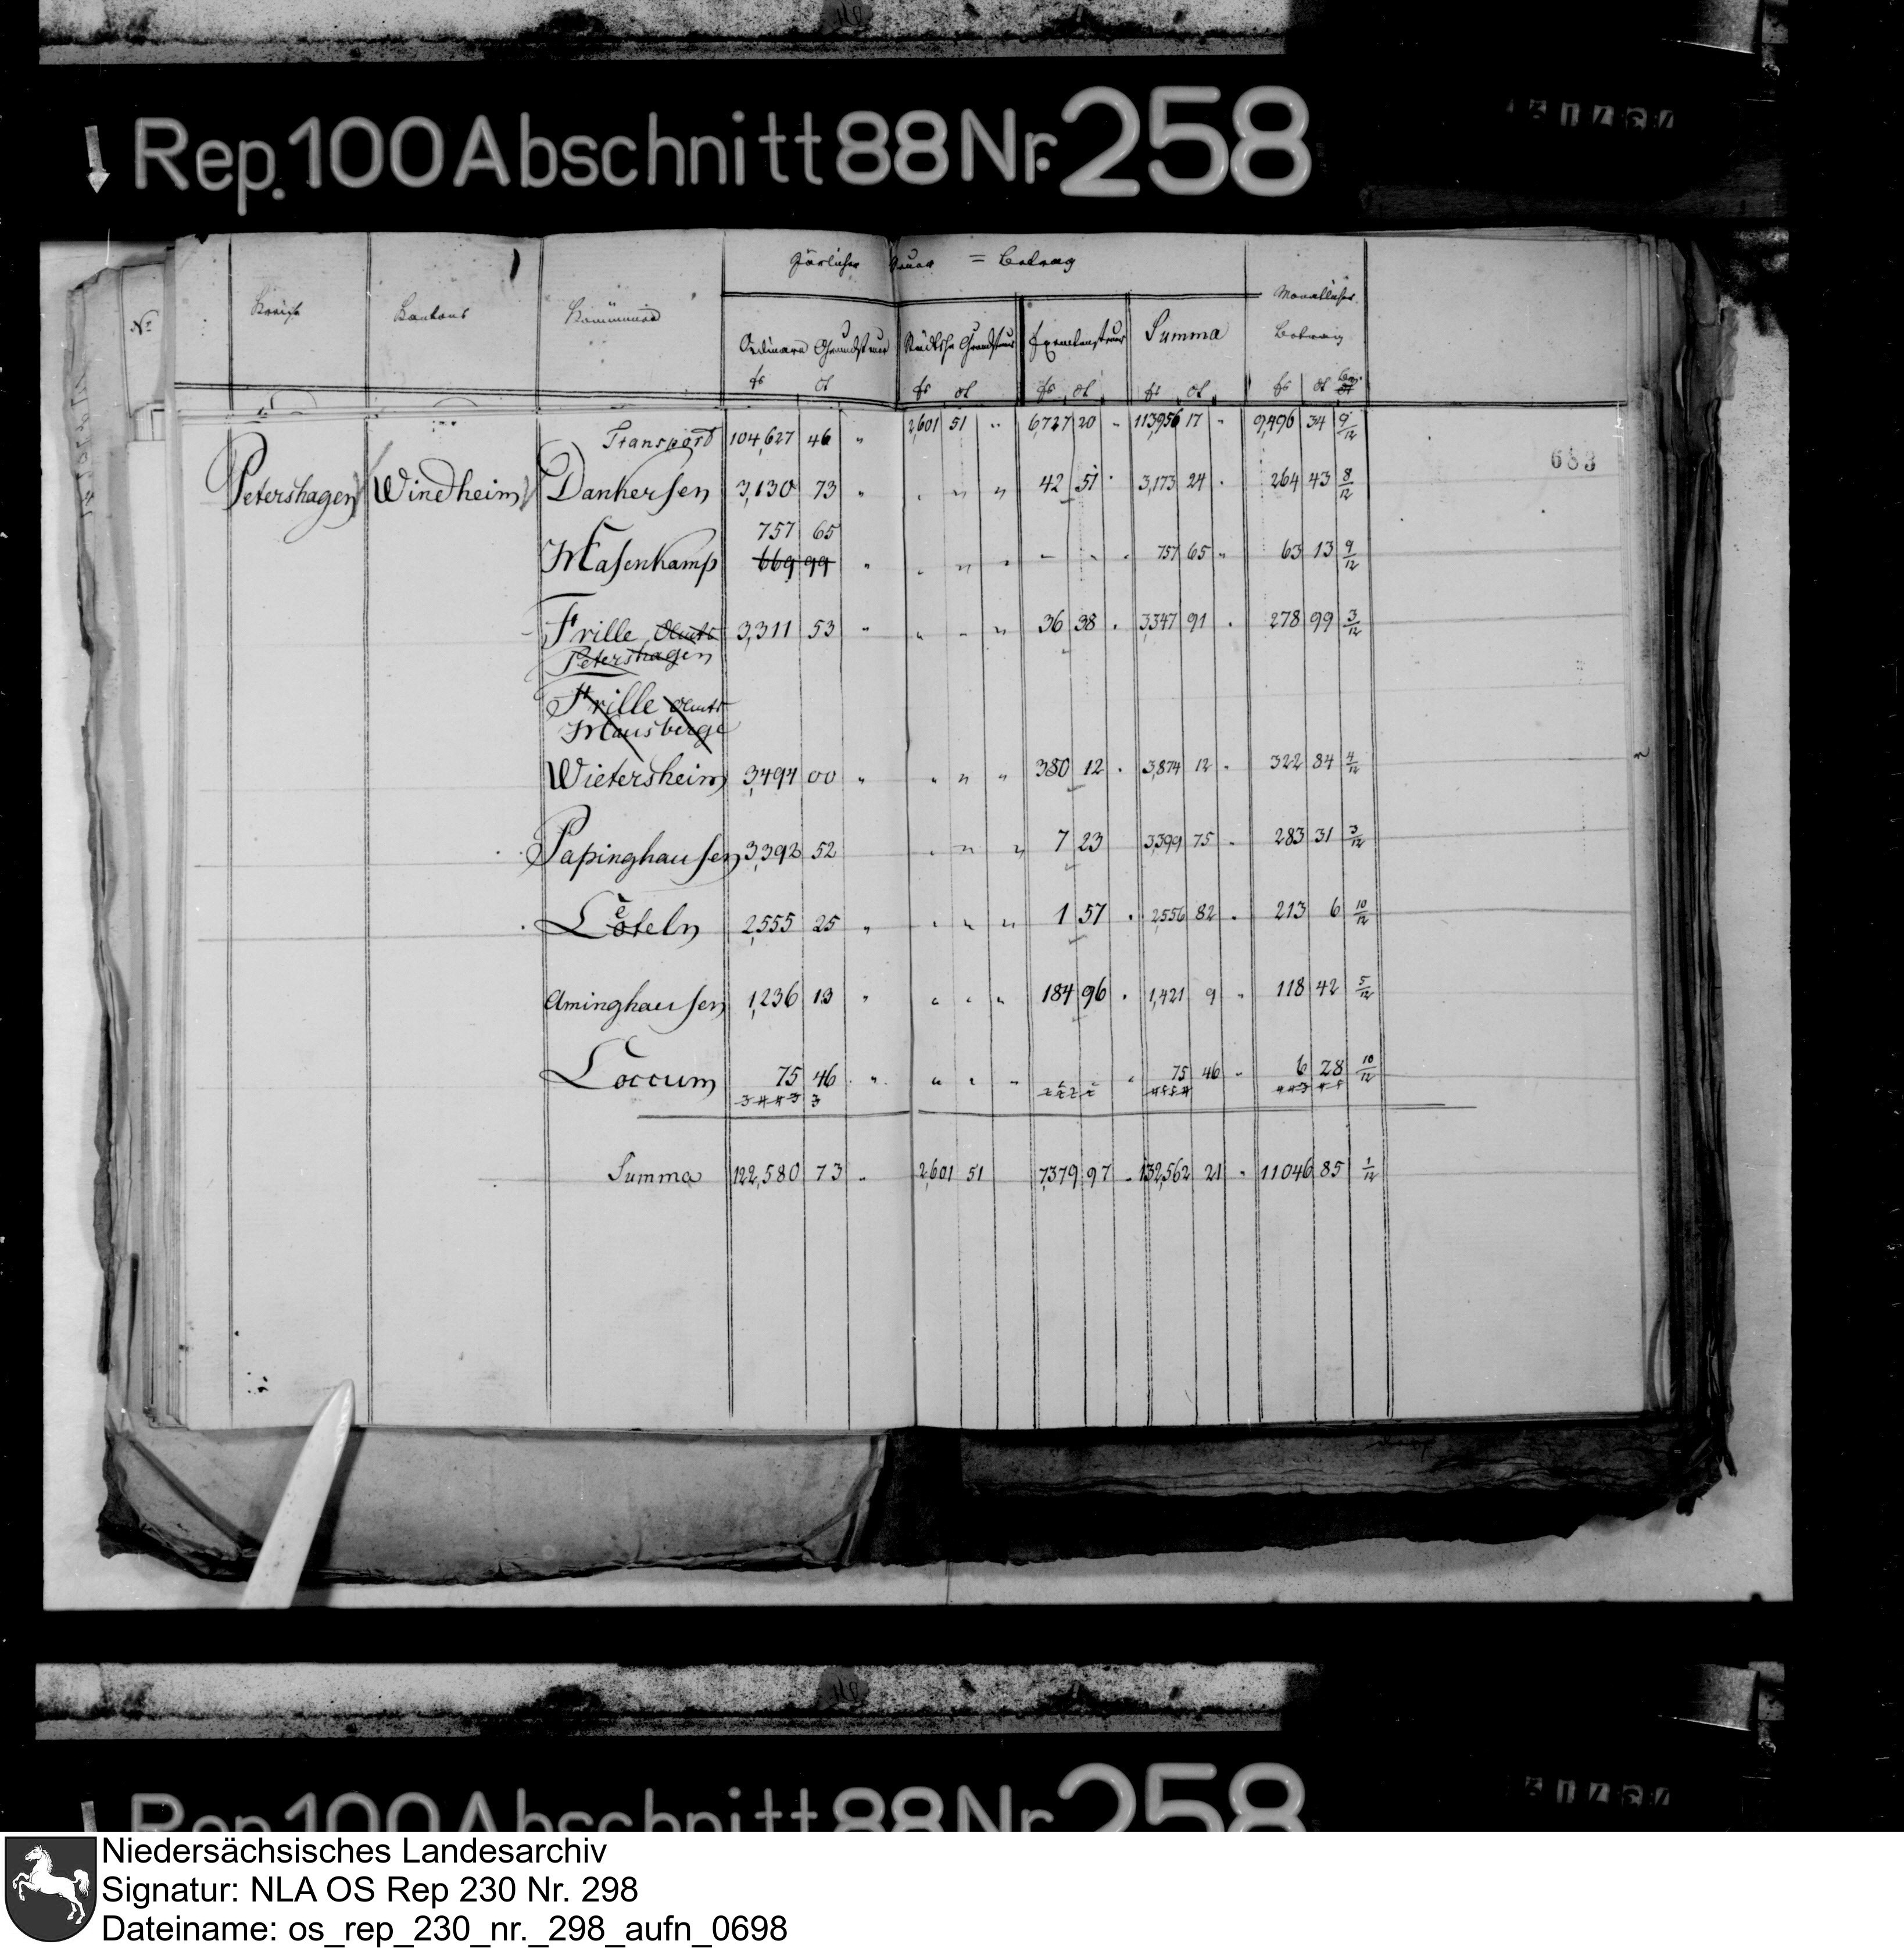 Rep. 100 Abschnitt 88 Nr. 258
Järlicher Steuer = Betrag
No Kreise Kantons Kommunen Ordinare Grundsteuer Städtische Grundsteuer Exemtensteuer Summa Monatlicher Betrag
fr ct fr ct fr ct fr ct fr ct
683
Transport 104,627 46 " 2,601 51 " 6,727 20 " 113,956 17 " 9,496 34 9/12
Petershagen Windheim Dankersen 3,130 73 " " " " 42 51 " 3,173 24 " 264 43 8/12
757 65
Masenkamp 669 99 " " " " " " " 757 65 " 63 13 9/12
Frille Amts 3,311 53 " " " " 36 38 " 3,347 91 " 278 99 3/12
Petershagen
Frille Amts
Hausberge
Wietersheim 3,494 00 " " " " 380 12 " 3,874 12 " 322 84 4/12
Päpinghausen 3,392 52 " " " 7 23 3,399 75 " 283 31 3/12
Löteln 2,555 25 " " " " 1 57 " 2,556 82 " 213 6 10/12
Aminghausen 1,236 13 " " " " 184 96 " 1,421 9 " 118 42 5/12
Loccum 75 46 " " " " " " " 75 46 " 6 28 10/12
Summa 122,580 73 " 2,601 51 7,379 97 " 132,562 21 " 11046 85 1/12
Rep. 100 Abschnitt 88 Nr. 258
Niedersächsisches Landesarchiv
Signatur: NLA OS Rep 230 Nr. 298
Dateiname: os_rep_230_nr._298_aufn_0698